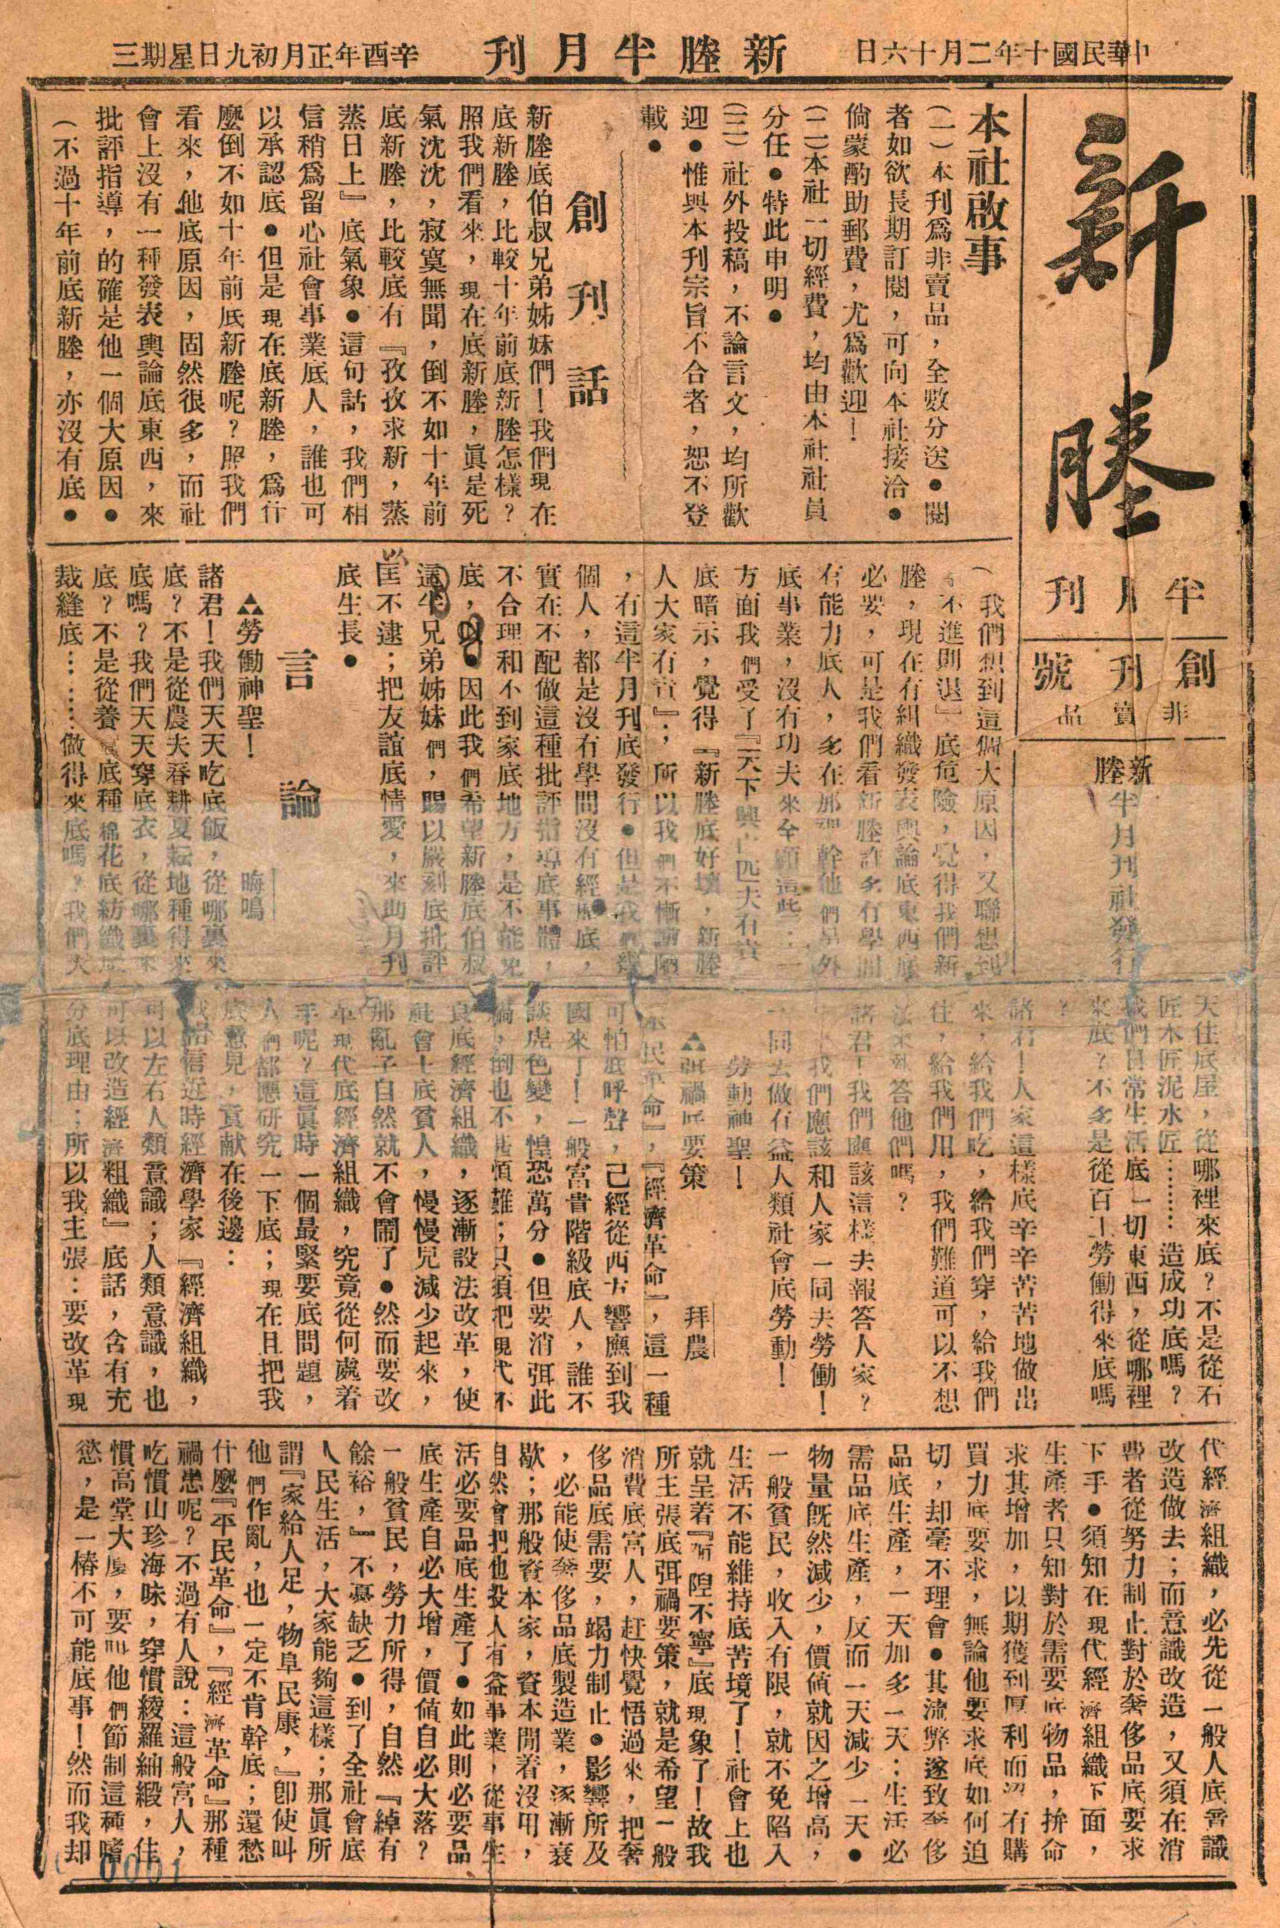 中華民國十年二月十六日
新塍半月刊
辛酉年正月初九日星期三
新塍
半月刊
創刊號
非賣品
新塍半月刊社發行
本社啟事
(一)本刊爲非賣品，全數分送●閱
者如欲長期訂閱，可向本社接洽●
倘蒙酌助郵費，尤爲歡迎！
(二)本社一切經費，均由本社社員
分任●特此申明●
(三)社外投稿，不論言文，均所歡
迎●惟與本刊宗旨不合者，恕不登
載●
創刊話
新塍底伯叔兄弟姊妹們！我們現在
底新塍，比較十年前底新塍怎樣？
照我們看來，現在底新塍，眞是死
氣沈沈，寂寞無聞，倒不如十年前
底新塍，比較底有『孜孜求新，蒸
蒸日上』底氣象●這句話，我們相
信稍爲留心社會事業底人，誰也可
以承認底●但是現在底新塍，爲什
麼倒不如十年前底新塍呢？照我們
看來，他底原因，固然很多，而社
會上沒有一種發表輿論底東西，來
批評指導，的確是他一個大原因●
(不過十年前底新塍，亦沒有底●
(我們想到這個大原因，又聯想到
不進則退』底危險，覺得我們新
塍，現在有組織發表輿論底東西底
必要，可是我們看新塍許多有學問
有能力底人，多在那裡幹他們另外
底事業，沒有功夫來全顧這些；一
方面我們受了『天下興亡匹夫有責
底暗示，覺得『新塍底好壞，新塍
人大家有責』；所以我們不慚譾陋
，有這半月刊底發行●但是我們幾
個人，都是沒有學問沒有經歷底，
實在不配做這種批評指導底事體，
不合理和不到家底地方，是不能免
底，●因此我們希望新塍底伯叔
兄弟姊妹們，賜以嚴刻底批評
匡不逮；把友誼底情愛，來助月刊
底生長●
言論
▲勞働神聖！
晦鳴
諸君！我們天天吃底飯，從哪裏來
底？不是從農夫春耕夏耘地種得來
底嗎？我們天天穿底衣，從哪裏來
底？不是從養蠶底種棉花底紡織底
裁縫底……做得來底嗎？我們天
天住底屋，從哪裡來底？不是從石
匠木匠泥水匠………造成功底嗎？
我們日常生活底一切東西，從哪裡
來底？不多是從百工勞働得來底嗎
？
諸君！人家這樣底辛辛苦苦地做出
來，給我們吃，給我們穿，給我們
住，給我們用，我們難道可以不想
法來報答他們嗎？
諸君！我們應該這樣去報答人家？
我們應該和人家一同去勞働！
一同去做有益人類社會底勞動！
勞動神聖！
▲弭禍底要策
拜農
『平民革命』，『經濟革命』，這一種
可怕底呼聲，己經從西方響應到我
國來了！一般富貴階級底人，誰不
談虎色變，惶恐萬分●但要消弭此
禍，倒也不甚煩難；只須把現代不
良底經濟組織，逐漸設法改革，使
社會上底貧人，慢慢兒減少起來，
那亂子自然就不會鬧了●然而要改
革現代底經濟組織，究竟從何處着
手呢？這眞時一個最緊要底問題，
人們都應研究一下底；現在且把我
底意見，貢獻在後邊：
我諸信近時經濟學家『經濟組織，
可以左右人類意識；人類意識，也
可以改造經濟組織』底話，含有充
分底理由；所以我主張：要改革現
代經濟組織，必先從一般人底意識
改造做去；而意識改造，又須在消
費者從努力制止對於奢侈品底要求
下手●須知在現代經濟組織下面，
生產者只知對於需要底物品，拚命
求其增加，以期獲到厚利而沒有購
買力底要求，無論他要求底如何迫
切，却毫不理會●其流弊遂致奢侈
品底生產，一天加多一天；生活必
需品底生產，反而一天減少一天●
物量旣然減少，價値就因之增高，
一般貧民，收入有限，就不免陷入
生活不能維持底苦境了！社會上也
就呈着『杌隉不寧』底現象了！故我
所主張底弭禍要策，就是希望一般
消費底富人，赶快覺悟過來，把奢
侈品底需要，竭力制止●影響所及
，必能使奢侈品底製造業，逐漸衰
歇；那般資本家，資本閒着沒用，
自然會把他投入有益事業，從事生
活必要品底生產了●如此則必要品
底生產自必大增，價値自必大落？
一般貧民，勞力所得，自然『綽有
餘裕，』不憂缺乏●到了全社會底
人民生活，大家能夠這樣；那眞所
謂『家給人足，物阜民康，』卽使叫
他們作亂，也一定不肯幹底；還愁
什麼『平民革命』，『經濟革命』那種
禍患呢？不過有人說：這般富人，
吃慣山珍海味，穿慣綾羅紬緞，住
慣高堂大廈，要叫他們節制這種嗜
慾，是一樁不可能底事！然而我却
0001